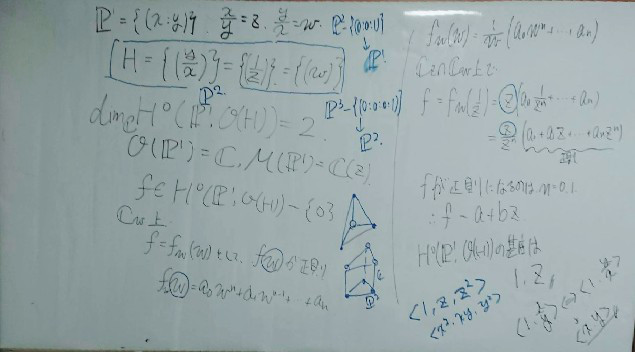 ℙ¹ = {(x:y)}, x/y = z, y/x = w.
ℙ²-{(0:0:1)}
↓
ℙ¹
H = {(y/x)} = {(1/z)} = {(w)}
ℙ²
dim_ℂ H⁰(ℙ¹, O(H)) = 2.
ℙ³-{(0:0:0:1)}
↓
ℙ².
O(ℙ¹) = ℂ, M(ℙ¹) = ℂ(z).
f ∈ H⁰(ℙ¹, O(H)) - {0}
ℂw上
f = f_w(w) として,
f_w(w) = a₀wⁿ + a₁wⁿ⁻¹ + ... + aₙ
f_w(w) = 1/w (a₀wⁿ + ... + aₙ)
ℂz∩ℂw上で
f = f_w(1/z) = z(a₀ 1/zⁿ + ... + aₙ)
= z/zⁿ (a₀ + a₁z + ... + aₙzⁿ)
fが正則になるのは n = 0, 1.
∴ f = a + bz
H⁰(ℙ¹, O(H))の基底は
1, z,
<1, z, z²>
<x², xy, y²>
<1, x/y>
<1, y/x>
<x, y>